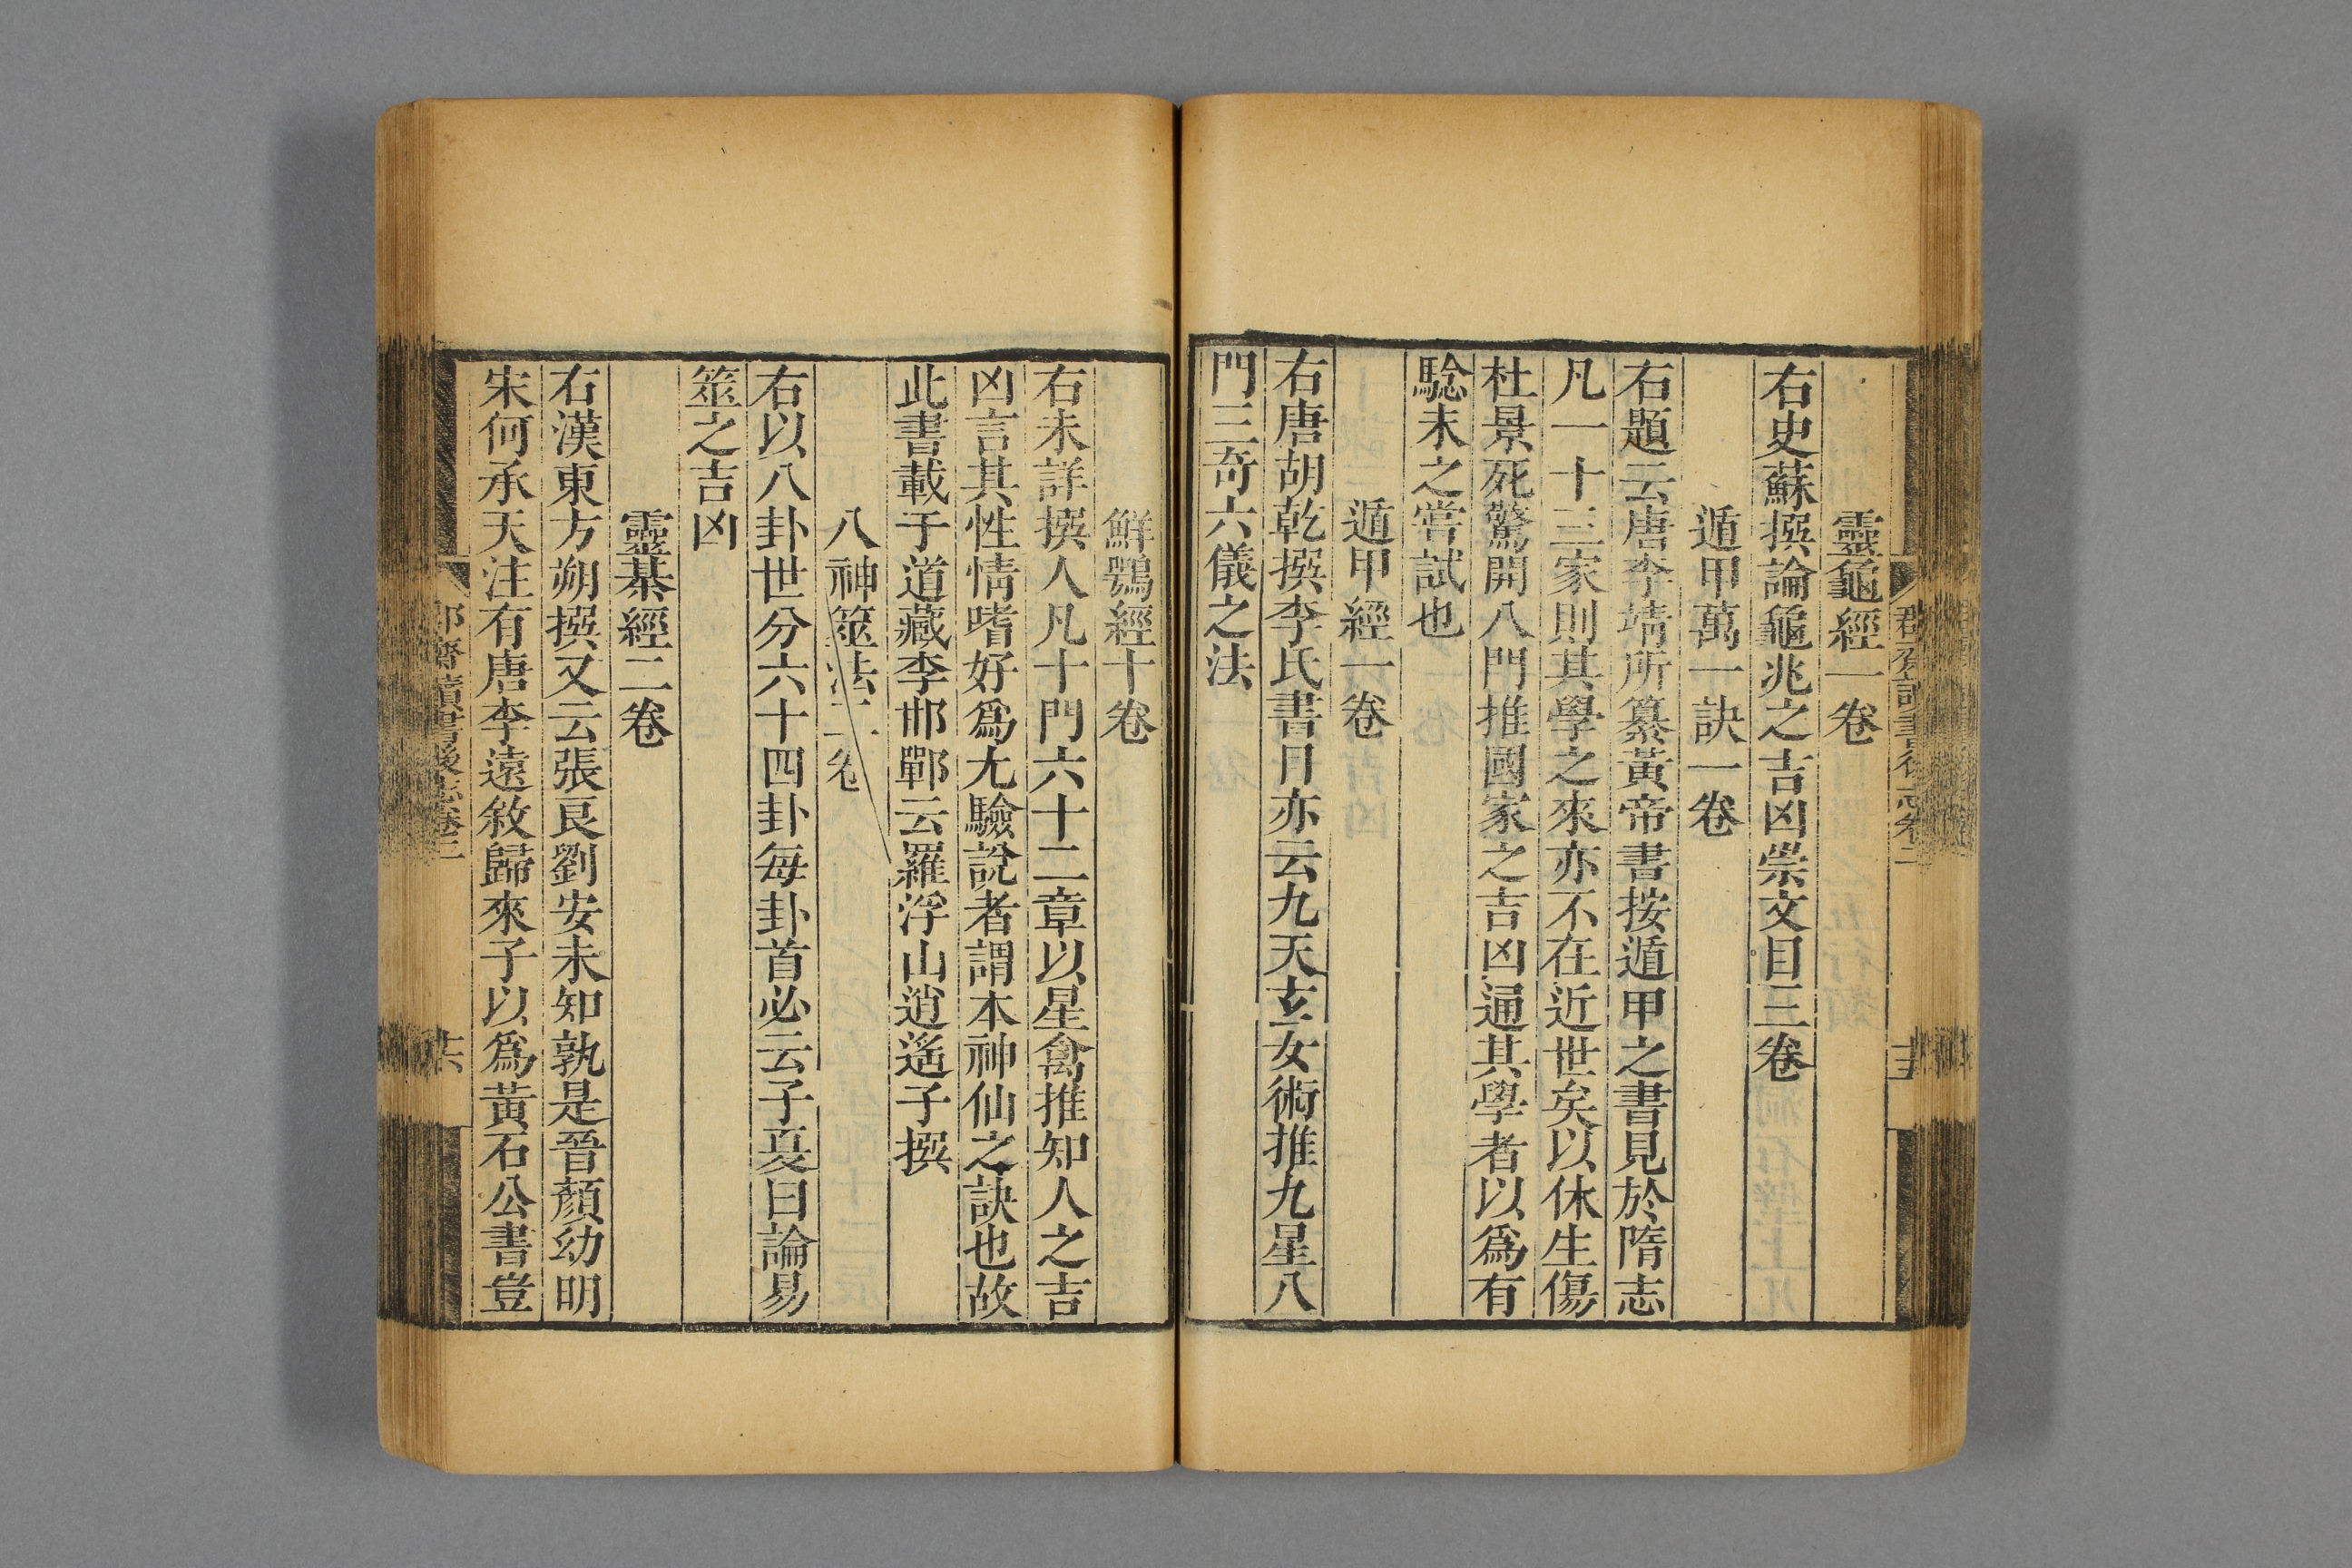 靈龜經一卷
右史蘇撰論龜兆之吉凶崇文目三卷
遁甲萬一訣一卷
右題云唐李靖所纂黃帝書按遁甲之書見於隋志
凡一十三家則其學之來亦不在近世矣以休生傷
杜景死驚開八門推國家之吉凶通其學者以爲有
騐未之嘗試也
遁甲經一卷
右唐胡乾撰李氏書目亦云九天玄女術推九星八
門三奇六儀之法
鮮鶚經十卷
右未詳撰人凡十門六十二章以星禽推知人之吉
凶言其性情嗜好爲尤驗說者謂本神仙之訣也故
此書載于道藏李邯鄲云羅浮山逍遙子撰
八神筮法二卷
右以八卦世分六十四卦每卦首必云子夏曰論易
筮之吉凶
靈棊經二卷
右漢東方朔撰又云張良劉安未知孰是晉顏幼明
宋何承天注有唐李遠敘歸來子以爲黃石公書豈
郡齋讀書後志卷二
十六